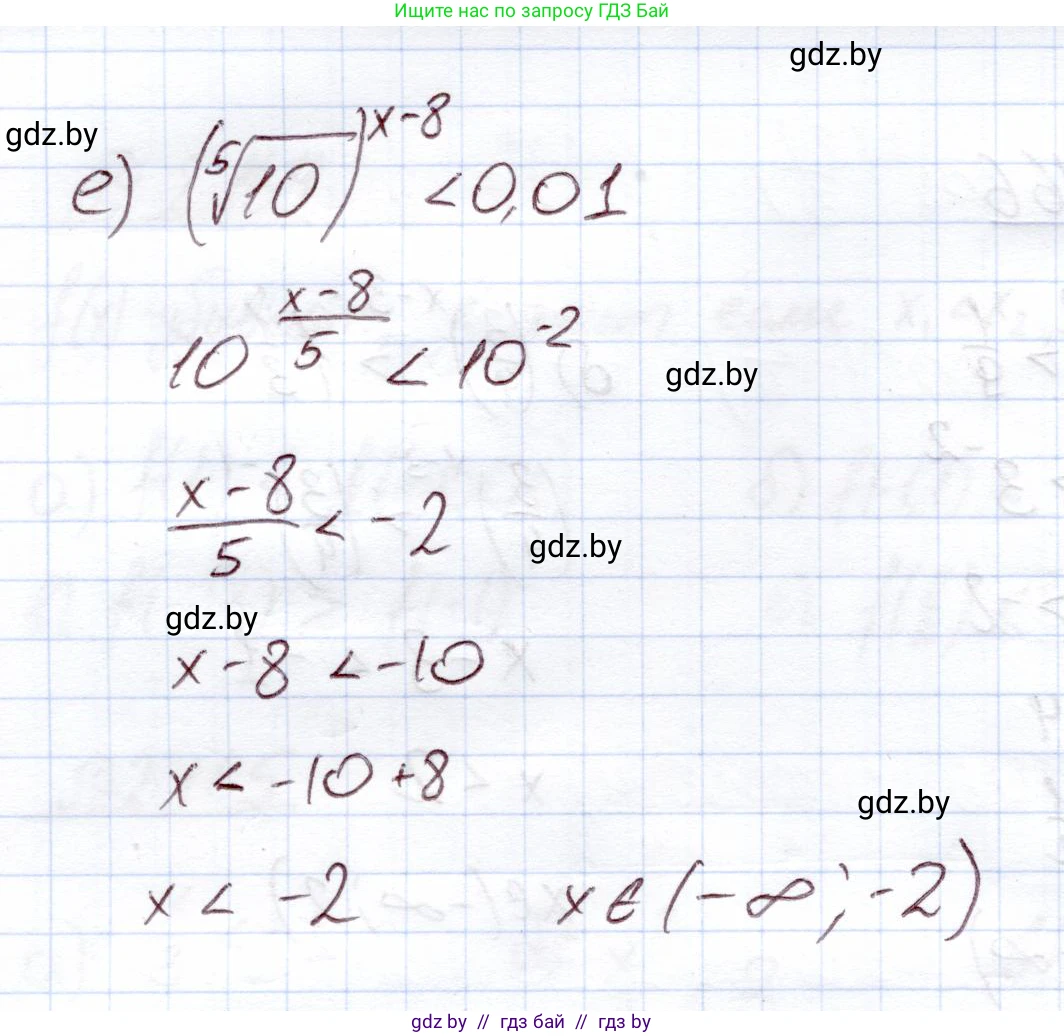 Ищите нас по запросу ГДЗ Бай
gdz.by
gdz.by
е) (⁵√10)^(x-8) < 0,01
10^((x-8)/5) < 10^(-2)
gdz.by
(x-8)/5 < -2
gdz.by
gdz.by
x-8 < -10
x < -10+8
gdz.by
x < -2 x∈(-∞; -2)
gdz.by // гдз бай // gdz by